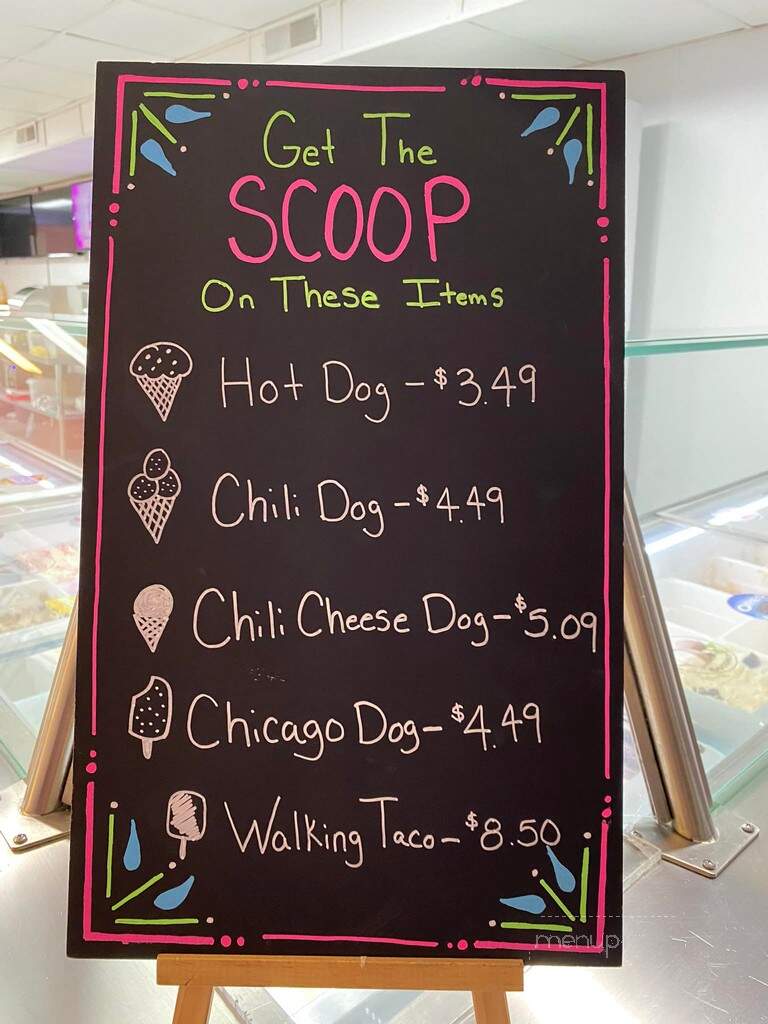 Get The
SCOOP
On These Items
Hot Dog - $3.49
Chili Dog - $4.49
Chili Cheese Dog - $5.09
Chicago Dog - $4.49
Walking Taco - $8.50
menup